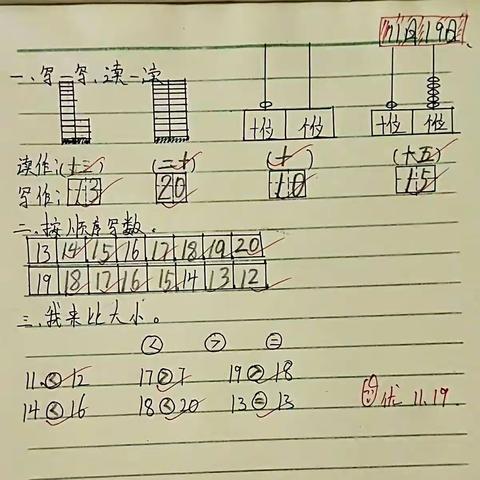 11月19日
一、写一写、读一读
十位 个位 十位 个位
读作:(十三) (二十) (十) (十五)
写作: 13 20 10 15
二、按顺序写数。
13 14 15 16 17 18 19 20
19 18 17 16 15 14 13 12
三、我来比大小。
< > =
11 < 12 17 > 7 19 > 18
14 < 16 18 < 20 13 = 13
优 11.19